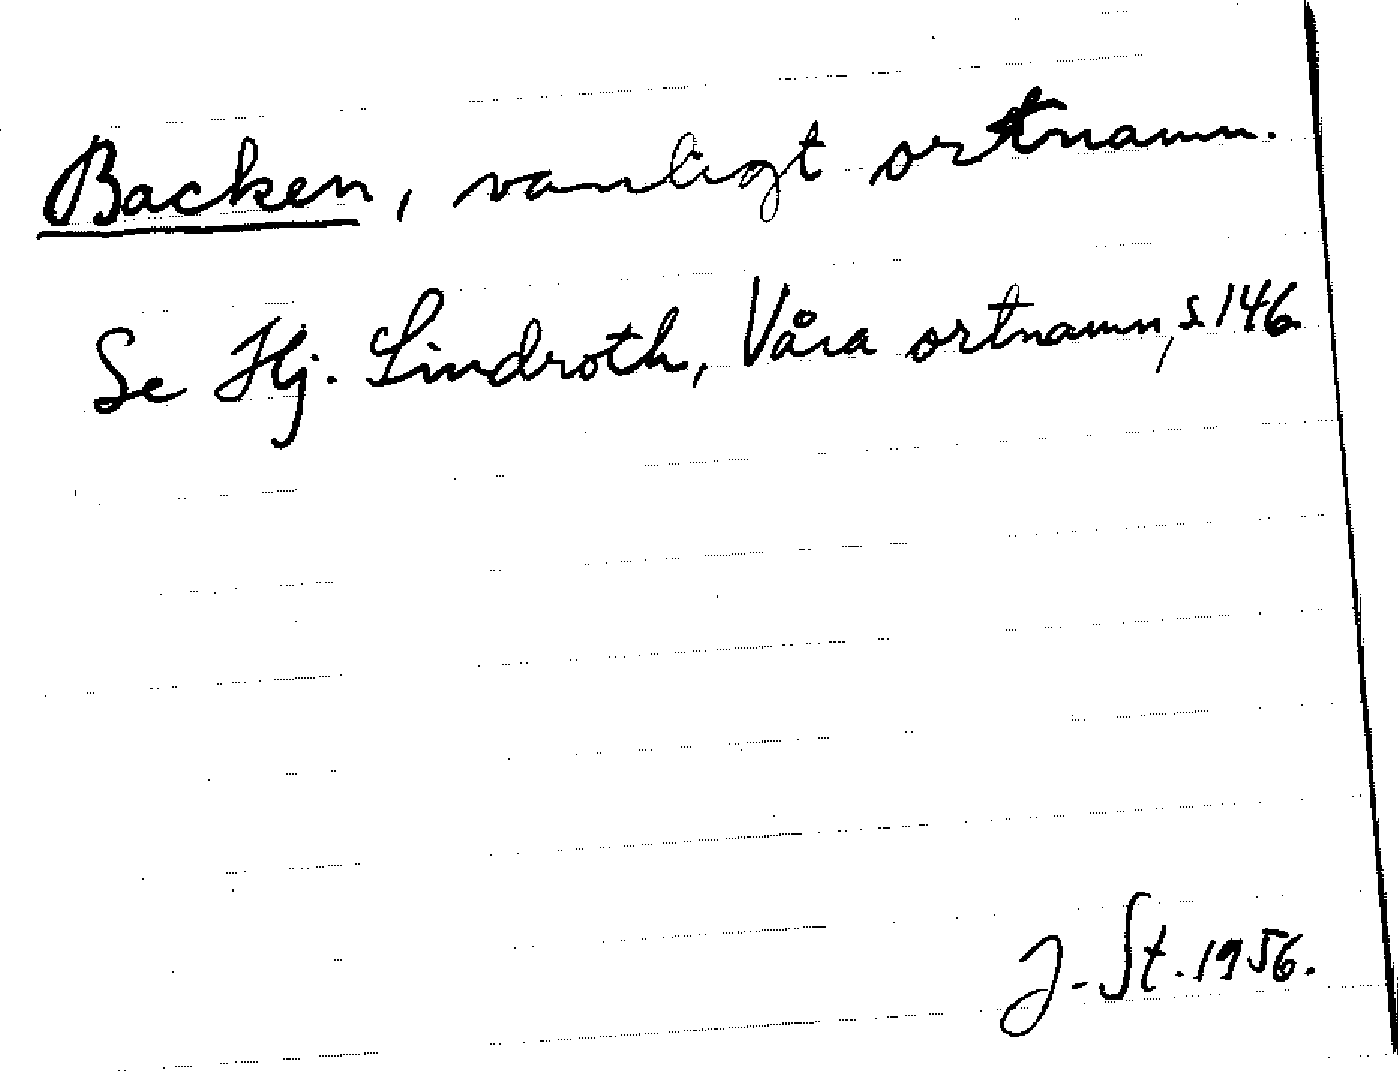 Backen, vanligt ortnamn.
Se Hj. Lindroth, Våra ortnamn, s. 146.
J. St. 1956.